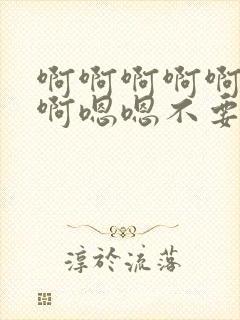 啊啊啊啊啊
啊嗯嗯不要
淳於流落